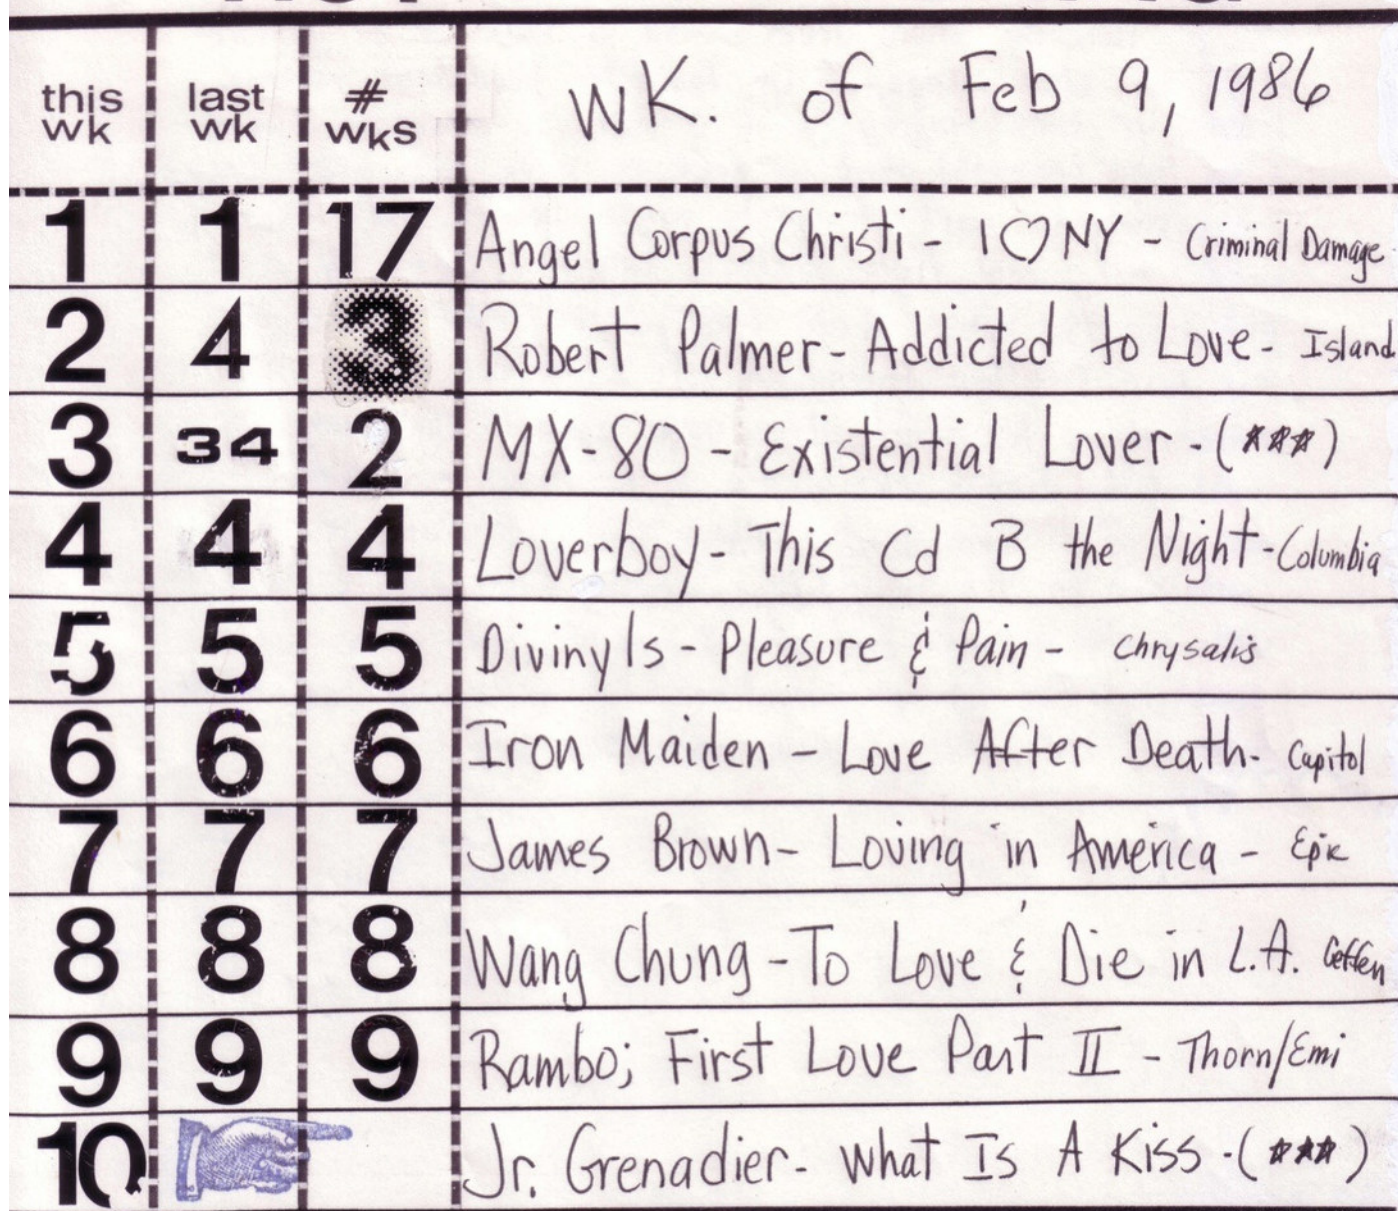 this wk last wk # wks wk. of Feb 9, 1986
1 1 17 Angel Corpus Christi - I ♡ NY - Criminal Damage
2 4 3 Robert Palmer - Addicted to Love - Island
3 34 2 MX-80 - Existential Lover - (***)
4 4 4 Loverboy - This Cd B the Night - Columbia
5 5 5 Divinyls - Pleasure & Pain - Chrysalis
6 6 6 Iron Maiden - Love After Death - Capitol
7 7 7 James Brown - Loving in America - Epic
8 8 8 Wang Chung - To Love & Die in L.A. Geffen
9 9 9 Rambo; First Love Part II - Thorn/Emi
10 Jr. Grenadier - What Is A Kiss - (***)